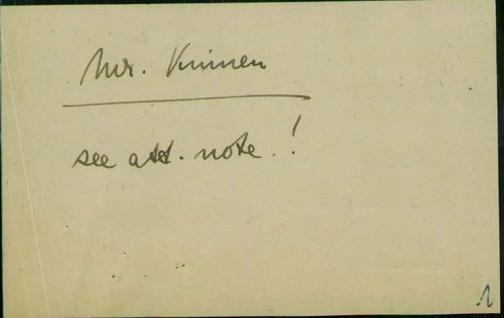 Mr. Kninen
see att. note.!
1